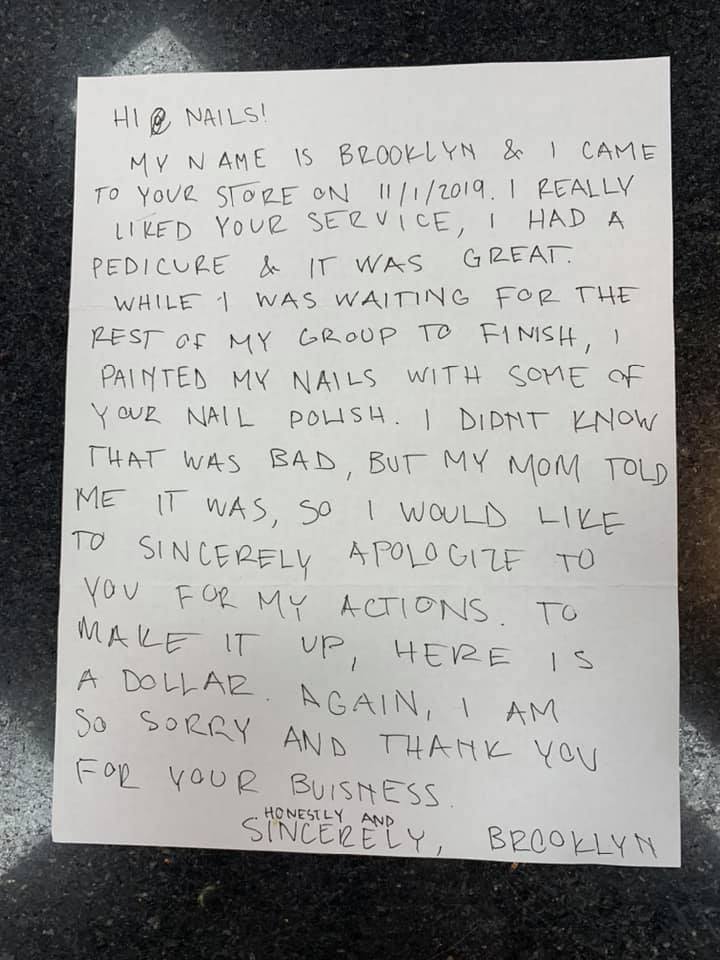 HI @ NAILS!
MY NAME IS BROOKLYN & I CAME
TO YOUR STORE ON 11/1/2019. I REALLY
LIKED YOUR SERVICE, I HAD A
PEDICURE & IT WAS GREAT.
WHILE I WAS WAITING FOR THE
REST OF MY GROUP TO FINISH, I
PAINTED MY NAILS WITH SOME OF
YOUR NAIL POLISH. I DIDNT KNOW
THAT WAS BAD, BUT MY MOM TOLD
ME IT WAS, SO I WOULD LIKE
TO SINCERELY APOLOGIZE TO
YOU FOR MY ACTIONS. TO
MAKE IT UP, HERE IS
A DOLLAR. AGAIN, I AM
SO SORRY AND THANK YOU
FOR YOUR BUISNESS.
HONESTLY AND
SINCERELY, BROOKLYN